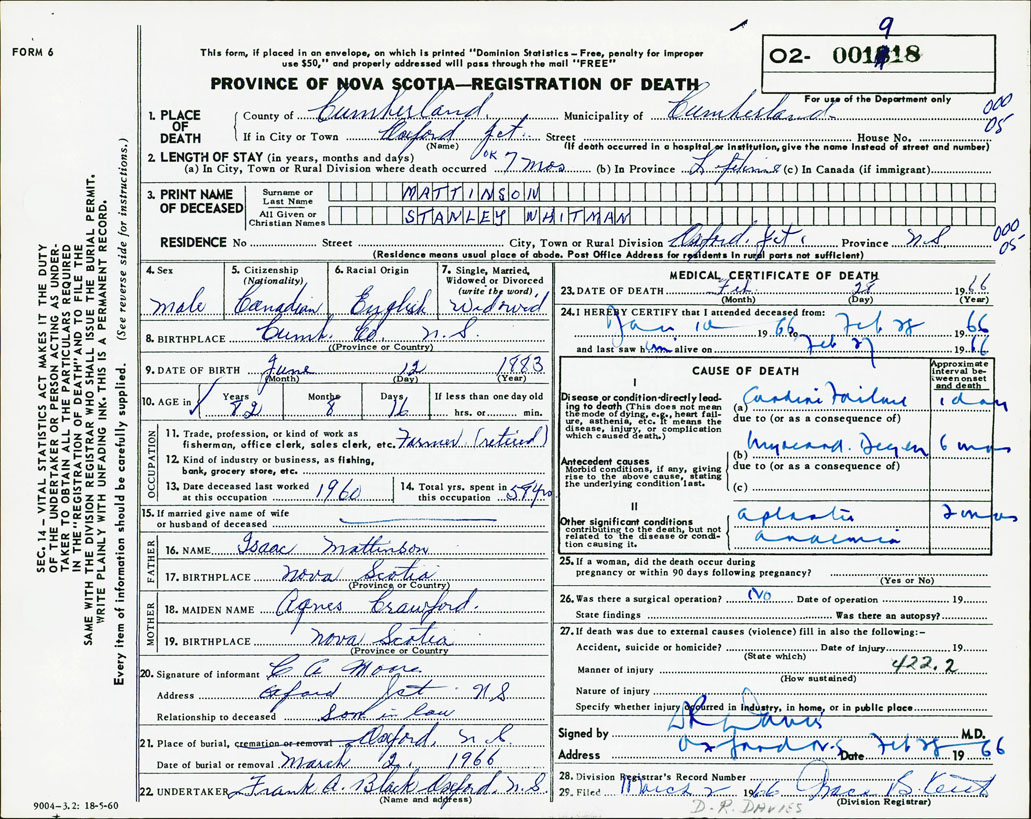 FORM 6
This form, if placed in an envelope, on which is printed "Dominion Statistics – Free, penalty for improper
use $50," and properly addressed will pass through the mail "FREE"
O2- 001818
9
PROVINCE OF NOVA SCOTIA—REGISTRATION OF DEATH
For use of the Department only
000
05
1. PLACE OF DEATH
County of Cumberland Municipality of Cumberland
If in City or Town Oxford Jct. Street House No.
(Name) (If death occurred in a hospital or institution, give the name instead of street and number)
2. LENGTH OF STAY (in years, months and days)
(a) In City, Town or Rural Division where death occurred OK 7 mos (b) In Province (c) In Canada (if immigrant)
3. PRINT NAME OF DECEASED
Surname or Last Name MATTINSON
All Given or Christian Names STANLEY WHITMAN
RESIDENCE No Street City, Town or Rural Division Oxford Jct. Province N.S
000
05
(Residence means usual place of abode. Post Office Address for residents in rural parts not sufficient)
4. Sex
male
5. Citizenship (Nationality)
Canadian
6. Racial Origin
English
7. Single, Married, Widowed or Divorced (write the word)
Widowid
8. BIRTHPLACE Cumb. Co. N.S.
(Province or Country)
9. DATE OF BIRTH June 12 1883
(Month) (Day) (Year)
10. AGE in Years 82 Months 8 Days 16 If less than one day old hrs. or min.
OCCUPATION
11. Trade, profession, or kind of work as
fisherman, office clerk, sales clerk, etc. Farmer (retired)
12. Kind of industry or business, as fishing,
bank, grocery store, etc.
13. Date deceased last worked at this occupation 1960
14. Total yrs. spent in this occupation 59 yrs
15. If married give name of wife
or husband of deceased
FATHER
16. NAME Isaac Mattinson
17. BIRTHPLACE Nova Scotia
(Province or Country)
MOTHER
18. MAIDEN NAME Agnes Crawford.
19. BIRTHPLACE Nova Scotia
(Province or Country)
20. Signature of informant C A Moore
Address Oxford Jct N S
Relationship to deceased Son in law
21. Place of burial, cremation or removal Oxford, N.S.
Date of burial or removal March 2, 1966
22. UNDERTAKER Frank A. Black Oxford, N.S.
(Name and address)
MEDICAL CERTIFICATE OF DEATH
23. DATE OF DEATH Feb. 28 1966
(Month) (Day) (Year)
24. I HEREBY CERTIFY that I attended deceased from:
Jan 10 1966 to Feb 28 1966
and last saw him alive on Feb 27 1966
CAUSE OF DEATH
Approximate interval between onset and death
I
Disease or condition directly leading to death (This does not mean
the mode of dying, e.g., heart failure, asthenia, etc. It means the
disease, injury, or complication
which caused death.)
(a) Cardiac Failure 1 day
due to (or as a consequence of)
(b) Myocard. Degen 6 mos
Antecedent causes
Morbid conditions, if any, giving
rise to the above cause, stating
the underlying condition last.
due to (or as a consequence of)
(c)
II
Other significant conditions
contributing to the death, but not
related to the disease or condition causing it.
aplastic
anaemia
2 mos
25. If a woman, did the death occur during
pregnancy or within 90 days following pregnancy?
(Yes or No)
26. Was there a surgical operation? No Date of operation 19
State findings Was there an autopsy?
27. If death was due to external causes (violence) fill in also the following:–
Accident, suicide or homicide? Date of injury 19
(State which)
Manner of injury 422.2
(How sustained)
Nature of injury
Specify whether injury occurred in industry, in home, or in public place
Signed by D R Davies M.D.
Address Oxford N.S Date Feb 28 1966
28. Division Registrar's Record Number
29. Filed March 2 1966 Grace B. Kent
(Division Registrar)
D.R. DAVIES
9004-3.2: 18-5-60
SEC. 14 – VITAL STATISTICS ACT MAKES IT THE DUTY
OF THE UNDERTAKER OR PERSON ACTING AS UNDER-
TAKER TO OBTAIN ALL THE PARTICULARS REQUIRED
IN THE "REGISTRATION OF DEATH" AND TO FILE THE
SAME WITH THE DIVISION REGISTRAR WHO SHALL ISSUE THE BURIAL PERMIT.
WRITE PLAINLY WITH UNFADING INK. THIS IS A PERMANENT RECORD.
Every item of information should be carefully supplied. (See reverse side for instructions.)